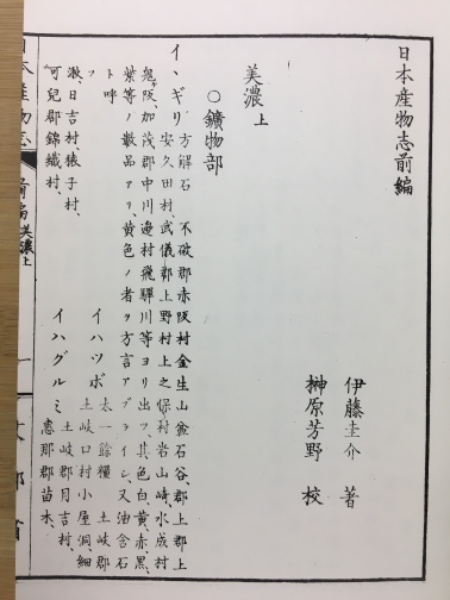 日本産物志前編
伊藤圭介 著
榊原芳野 校
美濃上
○鑛物部
イヽギリ 方解石 不破郡赤阪村金生山 石谷、郡上郡上
安久田村、武儀郡上野村上之保村岩山崎、水成村
鬼阪、加茂郡中川邊村飛驒川等ヨリ出ツ、其色白、黄、赤、黒、
紫等ノ數品アリ、黄色ノ者ヲ方言アブライシ、又油含石
ト呼フ
イハツボ 太一餘糧 土岐郡
土岐口村小屋洞、細
漱、日吉村、猿子村、
イハグルミ 土岐郡月吉村、
可兒郡錦織村、
惠那郡苗木、
日本産物志 前編美濃上 一 文部省